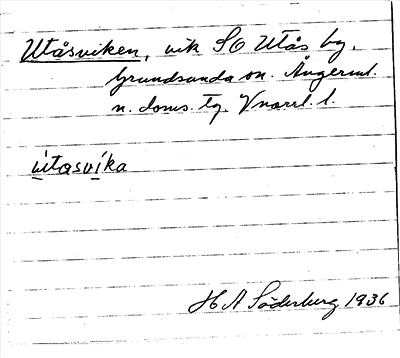 Utåsviken, vik SO Utås by,
Grundsunda sn. Ångerml.
n. doms. tg. Vnorrl. l.
utasvika
H A Söderberg 1936